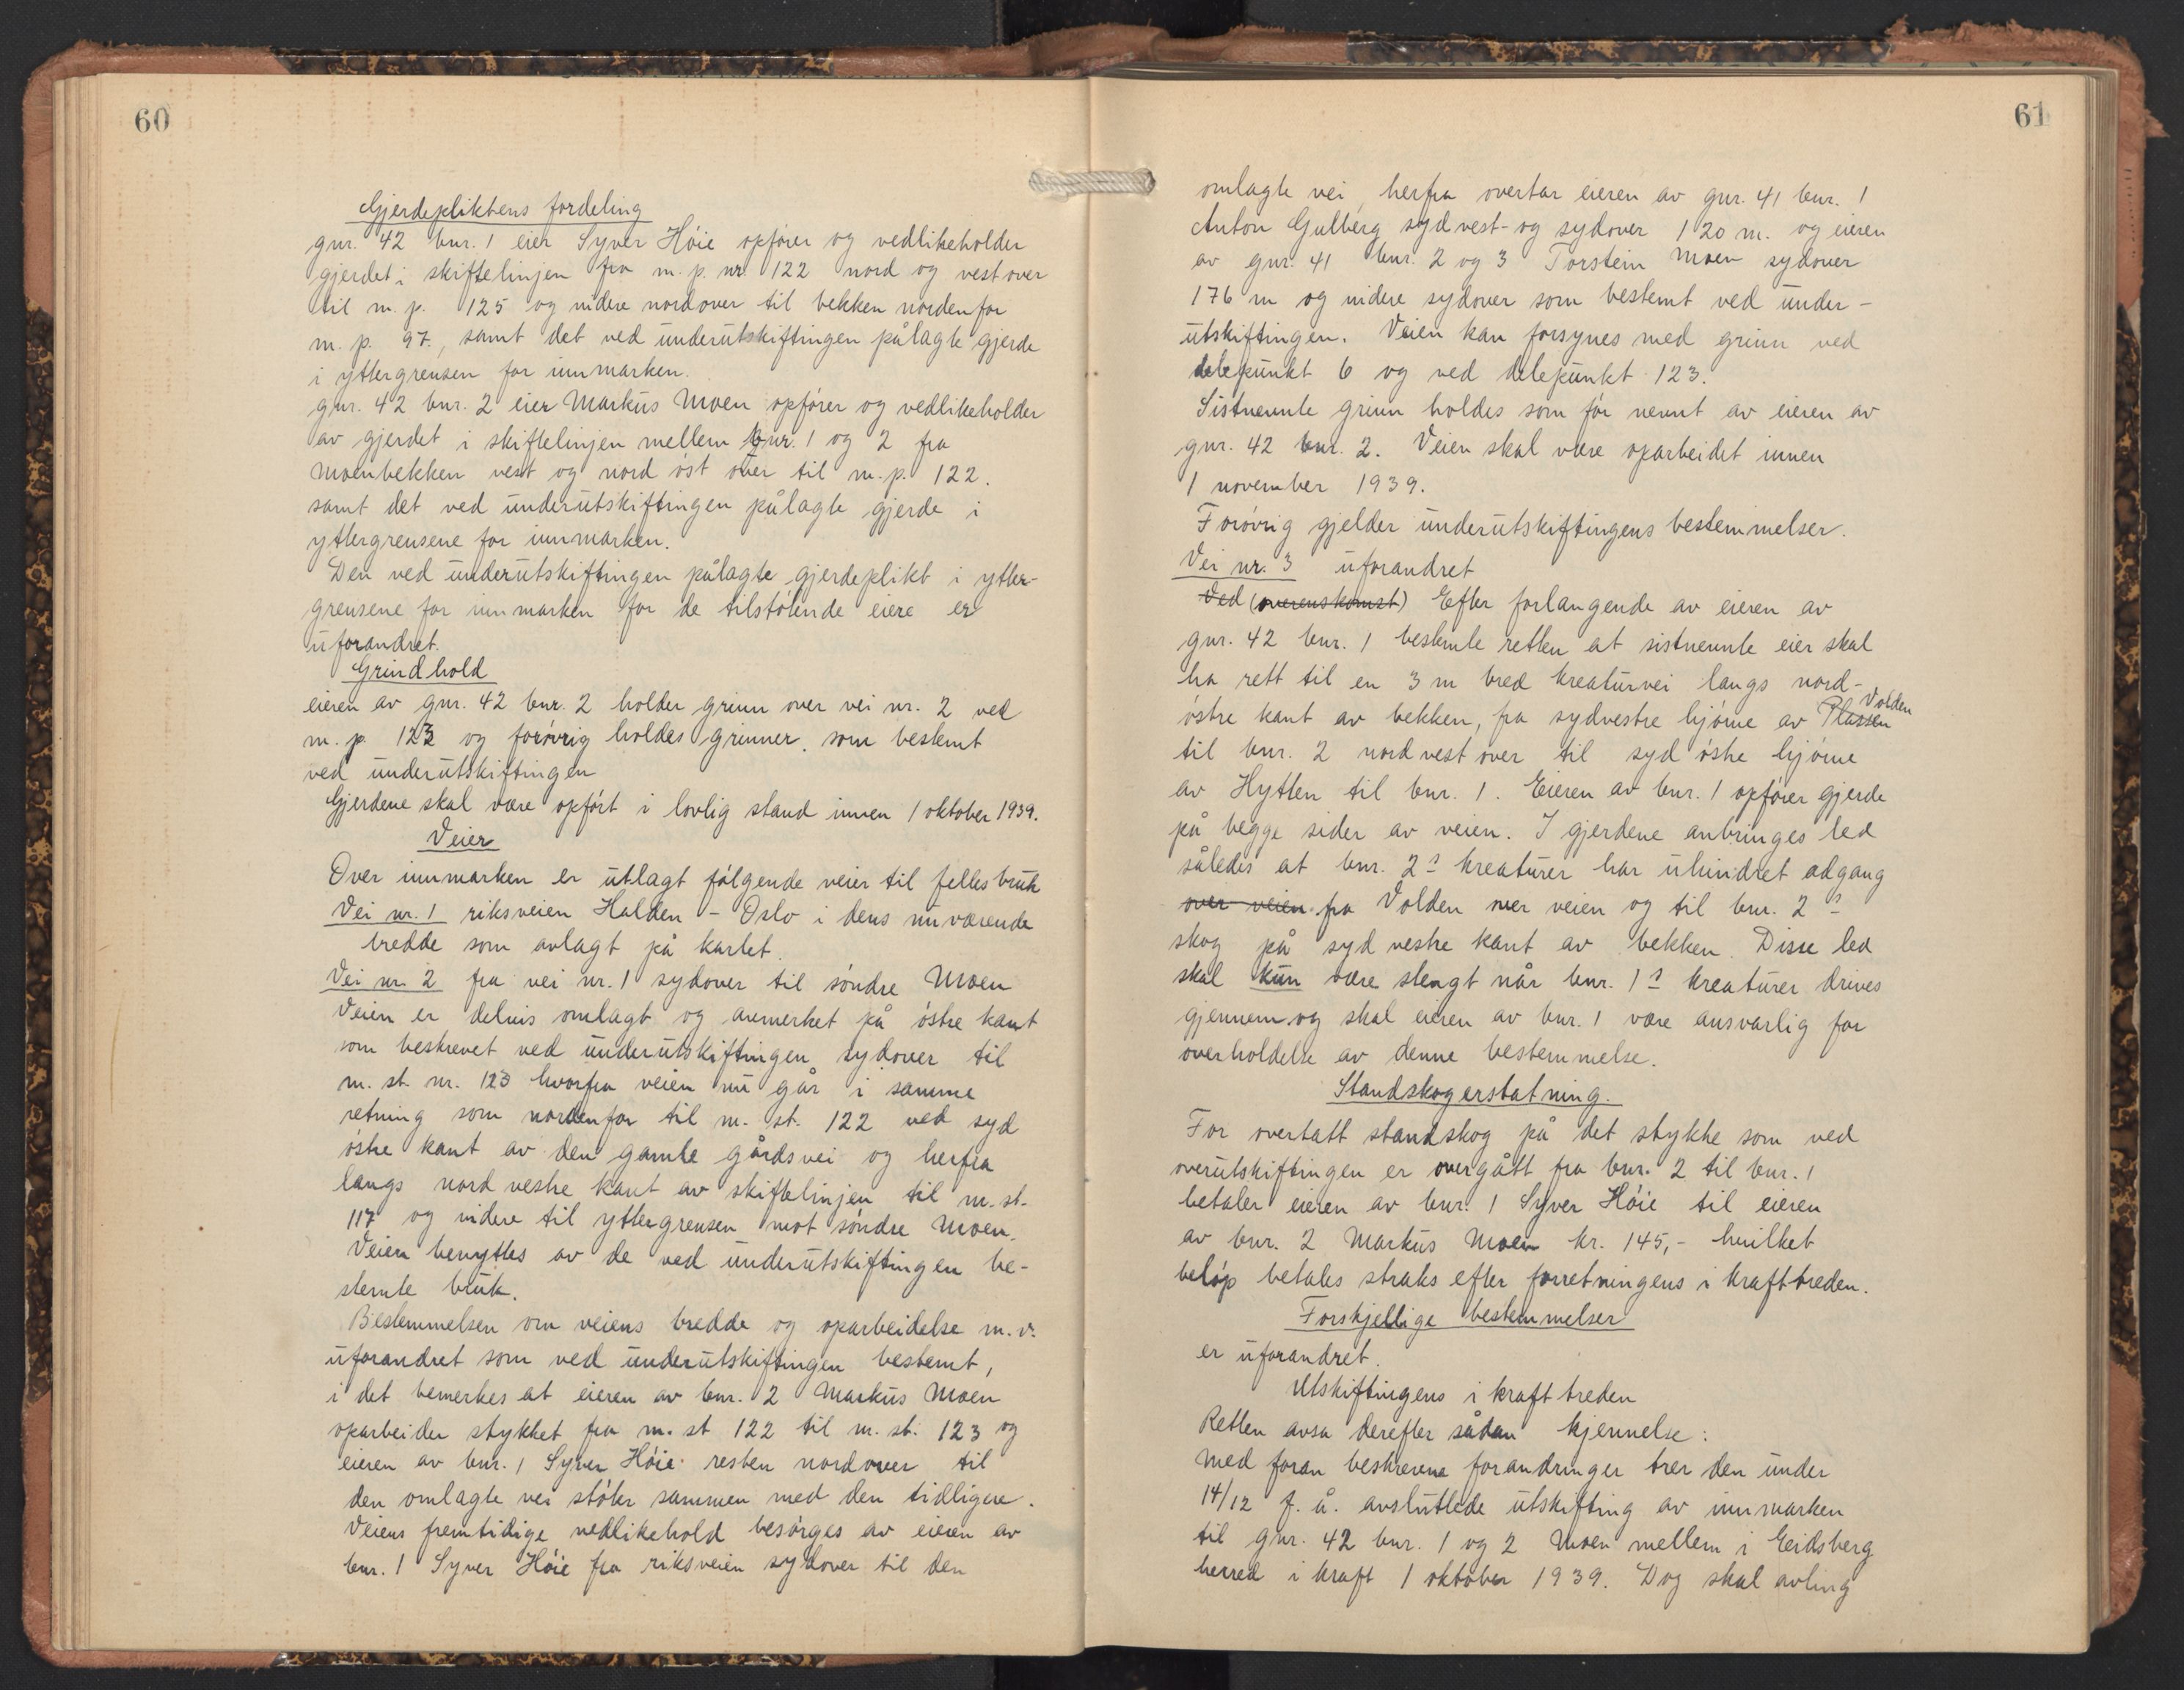 60
Gjerdepliktens fordeling
gnr. 42 bnr. 1 eier Syver Höie opfører og vedlikeholder
gjerdet i skiftelinjen fra m. p. nr. 122 nord og vestover
til m. p. 125 og videre nordover til bekken nordenfor
m. p. 97., samt det ved underutskiftingen pålagte gjerde
i yttergrensen for innmarken.
gnr. 42 bnr. 2 eier Markus Moen opfører og vedlikeholder
av gjerdet i skiftelinjen mellem bnr. 1 og 2 fra
Moenbekken vest og nord øst over til m. p. 122.
samt det ved underutskiftingen pålagte gjerde i
yttergrensene for innmarken.
Den ved underutskiftingen pålagte gjerdeplikt i ytter-
grensene for innmarken for de tilstøtende eiere er
uforandret.
Grindhold
eieren av gnr. 42 bnr. 2 holder grinn over vei nr. 2 ved
m. p. 123 og forøvrig holdes grinner som bestemt
ved underutskiftingen
Gjerdene skal være opført i lovlig stand innen 1 oktober 1939.
Veier
Over innmarken er utlagt følgende veier til felles bruk
Vei nr. 1 riksveien Halden - Oslo i dens nuværende
bredde som avlagt på kartet.
Vei nr. 2 fra vei nr. 1 sydover til søndre Moen
Veien er delvis omlagt og avmerket på østre kant
som beskrevet ved underutskiftingen sydover til
m. st. nr. 123 hvorfra veien nu går i samme
retning som nordenfor til m. st. 122 ved syd
østre kant av den gamle gårdsvei og herfra
langs nord vestre kant av skiftelinjen til m. st.
117 og videre til yttergrensen mot søndre Moen.
Veien benyttes av de ved underutskiftingen be-
stemte bruk.
Bestemmelsen om veiens bredde og oparbeidelse m. v.
uforandret som ved underutskiftingen bestemt,
i det bemerkes at eieren av bnr. 2 Markus Moen
oparbeider stykket fra m. st 122 til m. st. 123 og
eieren av bnr. 1 Syver Höie resten nordover til
den omlagte vei støter sammen med den tidligere.
Veiens fremtidige vedlikehold besørges av eieren av
bnr. 1 Syver Höie fra riksveien sydover til den
61
omlagte vei, herfra overtar eieren av gnr. 41 bnr. 1
Anton Gulberg sydvest- og sydover 120 m. og eieren
av gnr. 41 bnr. 2 og 3 Torstein Moen sydover
176 m og videre sydover som bestemt ved under-
utskiftingen. Veien kan forsynes med grinn ved
delepunkt 6 og ved delepunkt 123.
Sistnevnte grinn holdes som før nevnt av eieren av
gnr. 42 bnr. 2. Veien skal være oparbeidet innen
1 november 1939.
Forøvrig gjelder underutskiftingens bestemmelser.
Vei nr. 3 uforandret
Ved (overenskomst) Efter forlangende av eieren av
gnr. 42 bnr. 1 bestemte retten at sistnevnte eier skal
ha rett til en 3 m bred kreaturvei langs nord-
østre kant av bekken, fra sydvestre hjørne av Plassen Volden
til bnr. 2 nordvest over til syd østre hjørne
av Hytten til bnr. 1. Eieren av bnr. 1 opfører gjerde
på begge sider av veien. I gjerdene anbringes led
således at bnr. 2s kreaturer har uhindret adgang
over veien fra Volden over veien og til bnr. 2s
skog på syd vestre kant av bekken. Disse led
skal kun være stengt når bnr. 1s kreaturer drives
gjennem og skal eieren av bnr. 1 være ansvarlig for
overholdelse av denne bestemmelse.
Standskogerstatning.
For overtatt standskog på det stykke som ved
overutskiftingen er overgått fra bnr. 2 til bnr. 1
betaler eieren av bnr. 1 Syver Höie til eieren
av bnr. 2 Markus Moen kr. 145,- hvilket
beløp betales straks efter forretningens i krafttreden.
Forskjellige bestemmelser
er uforandret.
Utskiftingens i kraft treden
Retten avsa derefter sådan kjennelse:
Med foran beskrevne forandringer trer den under
14/12 f. å. avsluttede utskifting av innmarken
til gnr. 42 bnr. 1 og 2 Moen mellem i Eidsberg
herred i kraft 1 oktober 1939. Dog skal avling